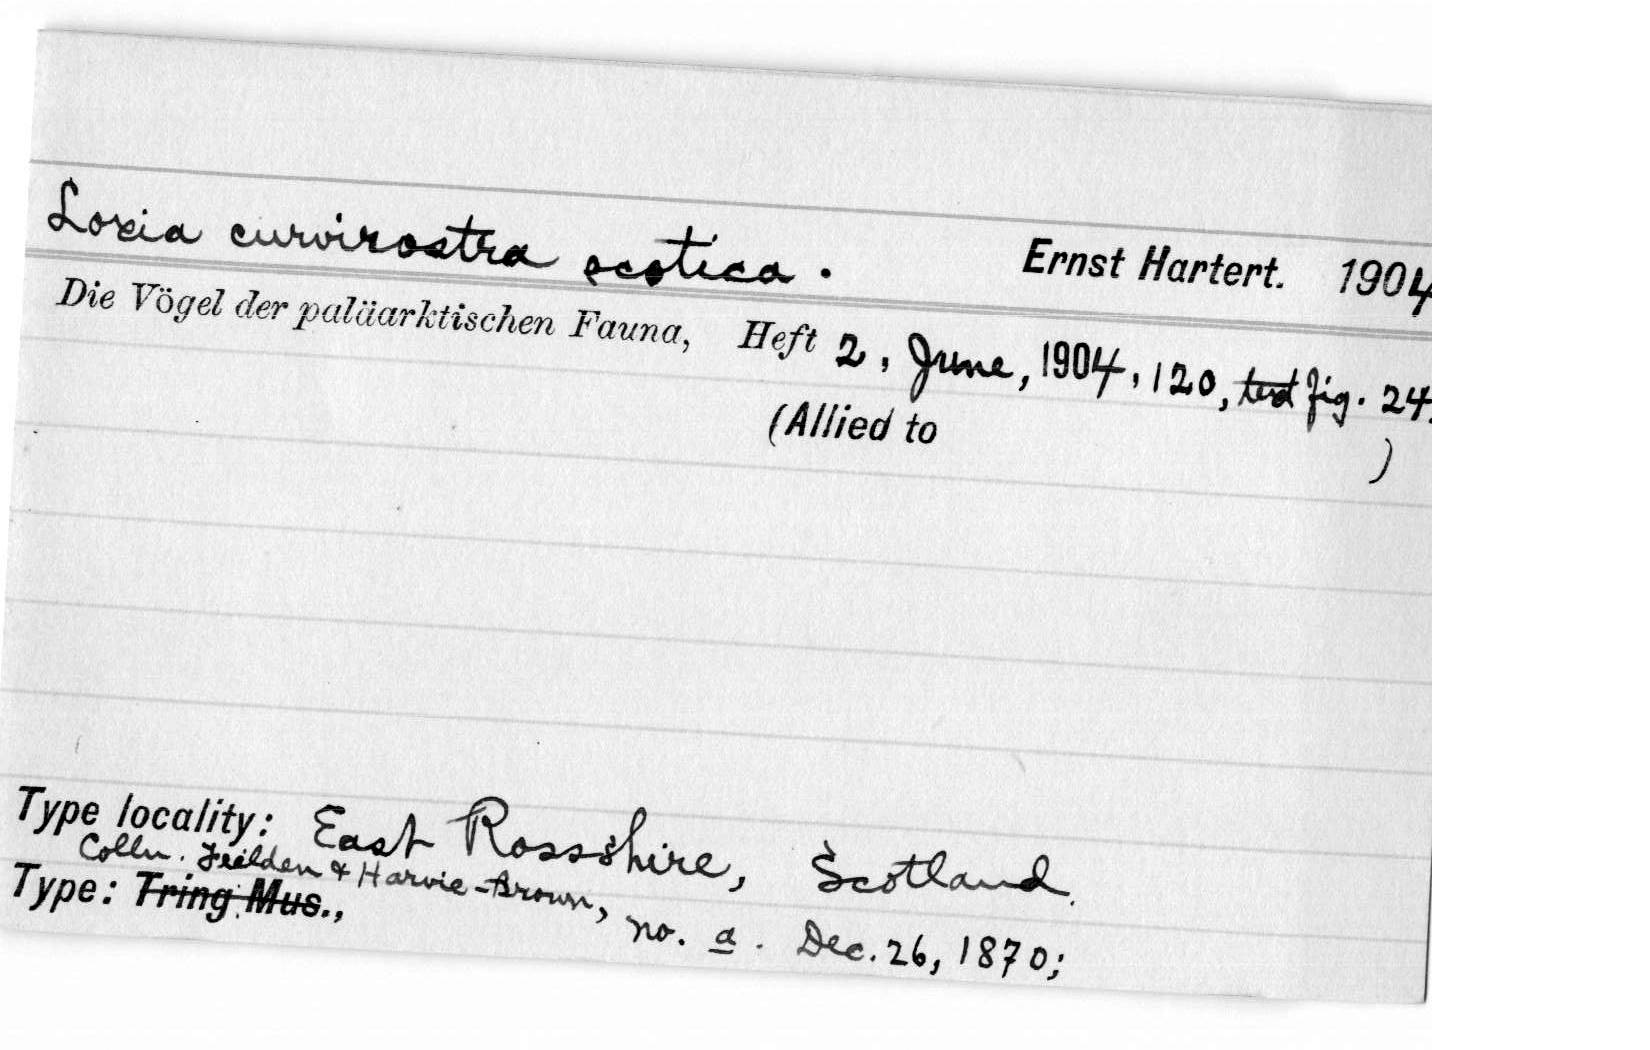 Loxia curvirostra scotica. Ernst Hartert. 1904
Die Vögel der paläarktischen Fauna, Heft 2, June, 1904, 120, text fig. 24.
(Allied to )
Type locality: East Rossshire, Scotland.
Colln. Feilden & Harvie-Brown,
Type: Tring Mus., no. a. Dec. 26, 1870;